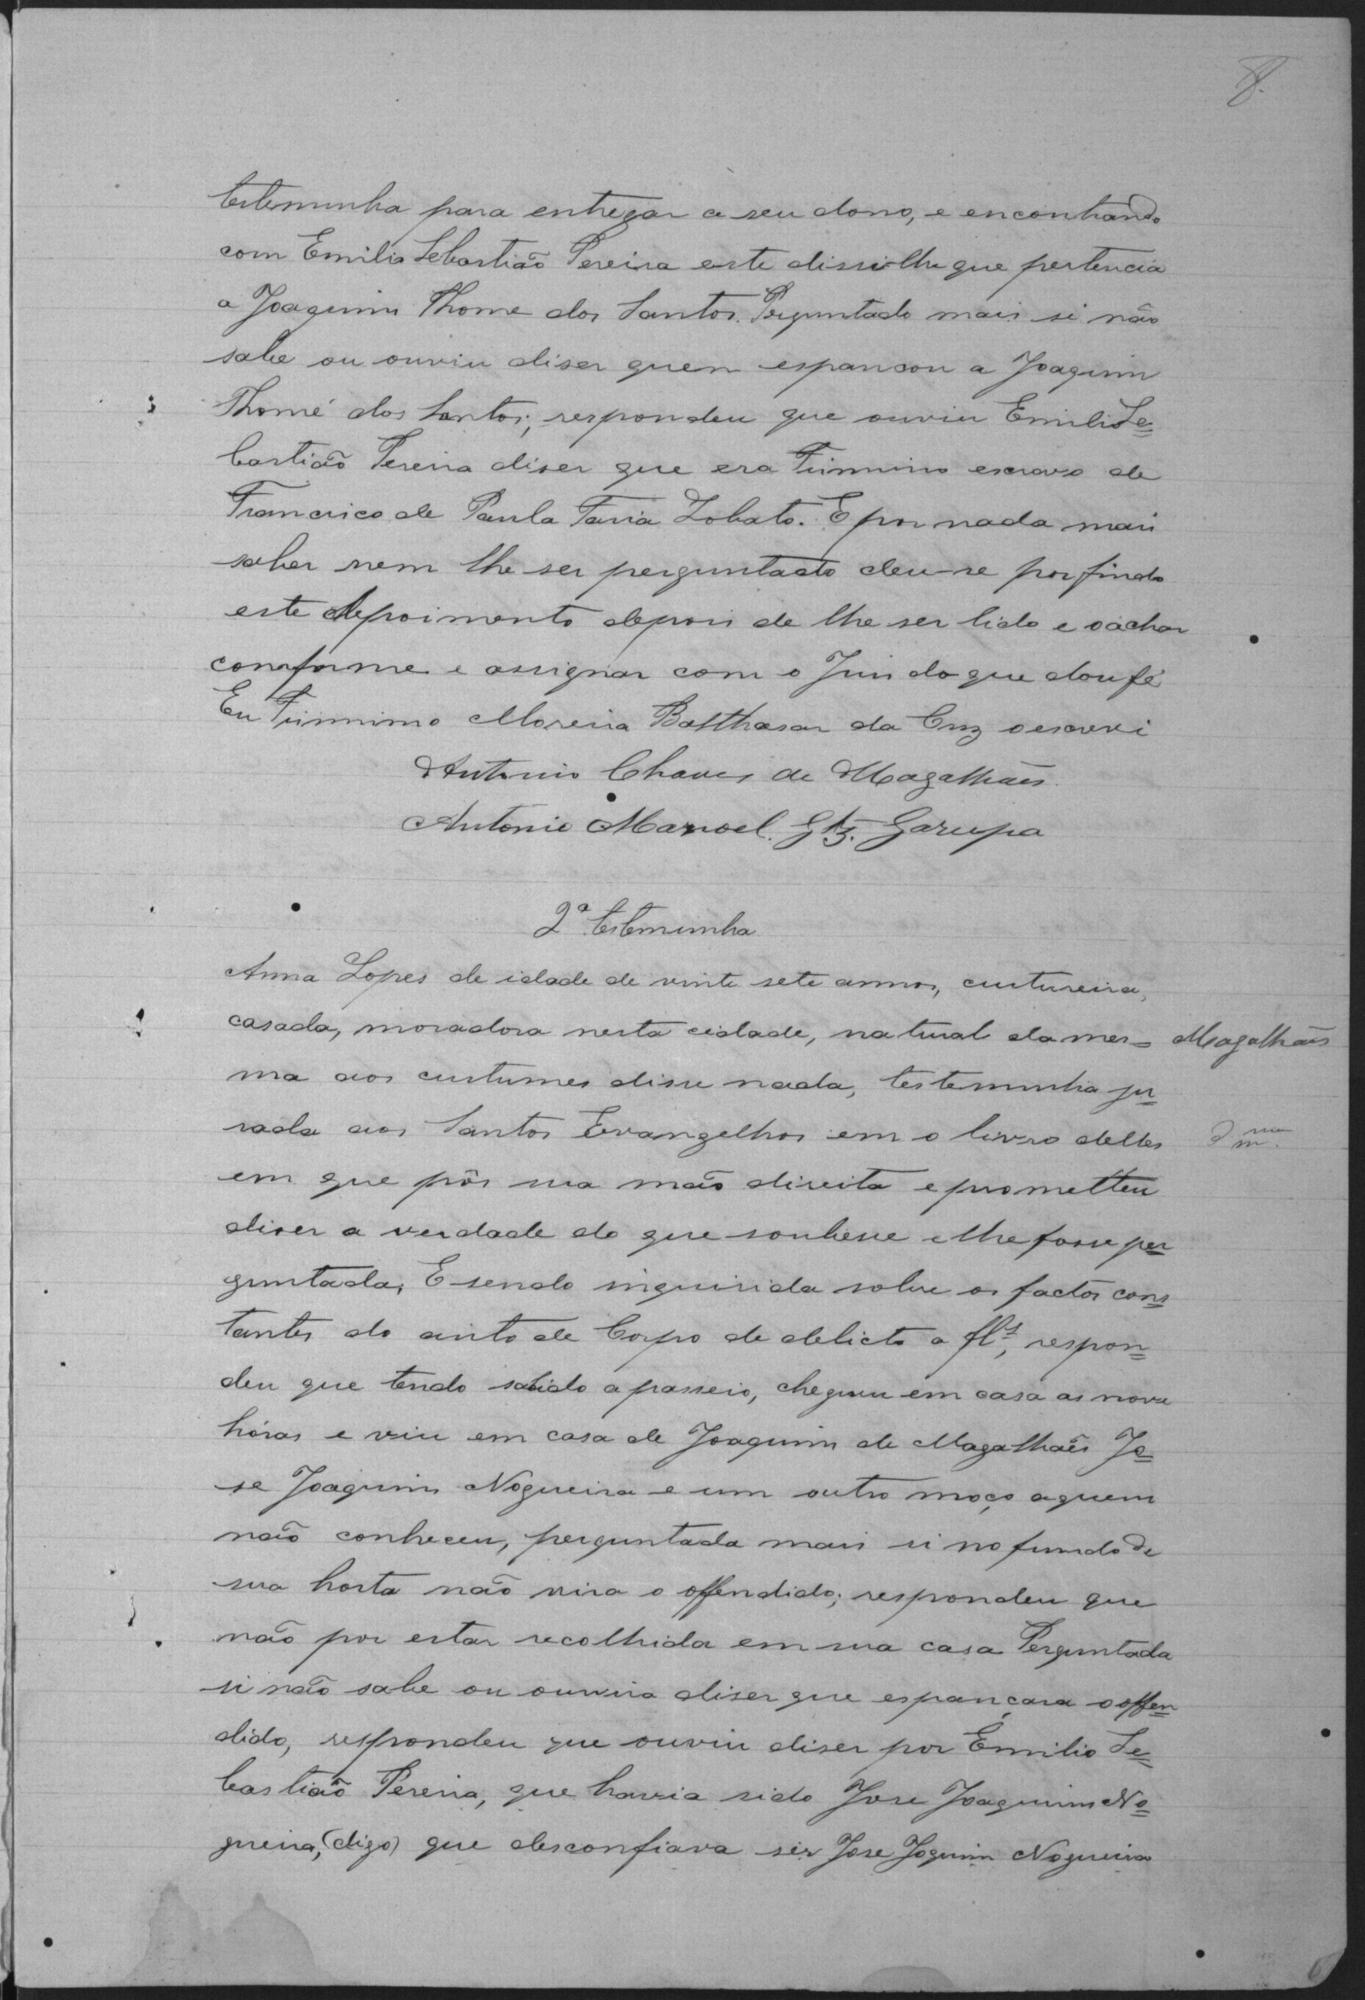 8.
testemunha para entregar a seu dono, e encontrando
com Emilio Sebastião Pereira este disse-lhe que pertencia
a Joaquim Thome dos Santos. Perguntado mais si não
sabe ou ouviu diser quem espancou a Joaquim
Thomé dos Santos; respondeu que ouviu Emilio Se=
bastião Pereira diser que era Firmino escravo de
Francisco de Paula Faria Lobato. E por nada mais
saber nem lhe ser perguntado deu-se por findo
este depoimento depois de lhe ser lido e o achar
conforme e assignar com o Juis do que dou fé
Eu Firmino Moreira Balthasar da Cruz o escrevi
Antonio Chaves de Magalhães
Antonio Manoel Glz. Garupa
2ª testemunha
Anna Lopes de idade de vinte sete annos, custureira,
casada, moradora nesta cidade, natural da mes= Magalhães
ma aos custumes disse nada, testemunha ju=
rada aos Santos Evangelhos em o livro delles
em que pôs sua mão direita e prometteu
diser a verdade do que soubesse e lhe fosse per=
guntada, E sendo inquirida sobre os factos cons=
tantes do auto de Corpo de delicto a fls, respon=
deu que tendo sahido a passeio, chegou em casa as nove
hóras e viu em casa de Joaquim de Magalhães Jo=
se Joaquim Nogueira e um outro moço aquem
não conheceu, perguntada mais si no fundo de
sua horta não vira o offendido; respondeu que
não por estar recolhida em sua casa Perguntada
si não sabe ou ouvira diser que espancara o offen=
dido, respondeu que ouviu diser por Emilio Se=
bastião Pereira, que havia sido Jose Joaquim No=
gueira, (digo) que desconfiava ser Jose Joquim Nogueira